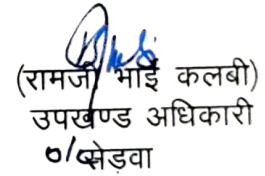 (रामजी भाई कलबी)
उपखण्ड अधिकारी
o/c सेड़वा